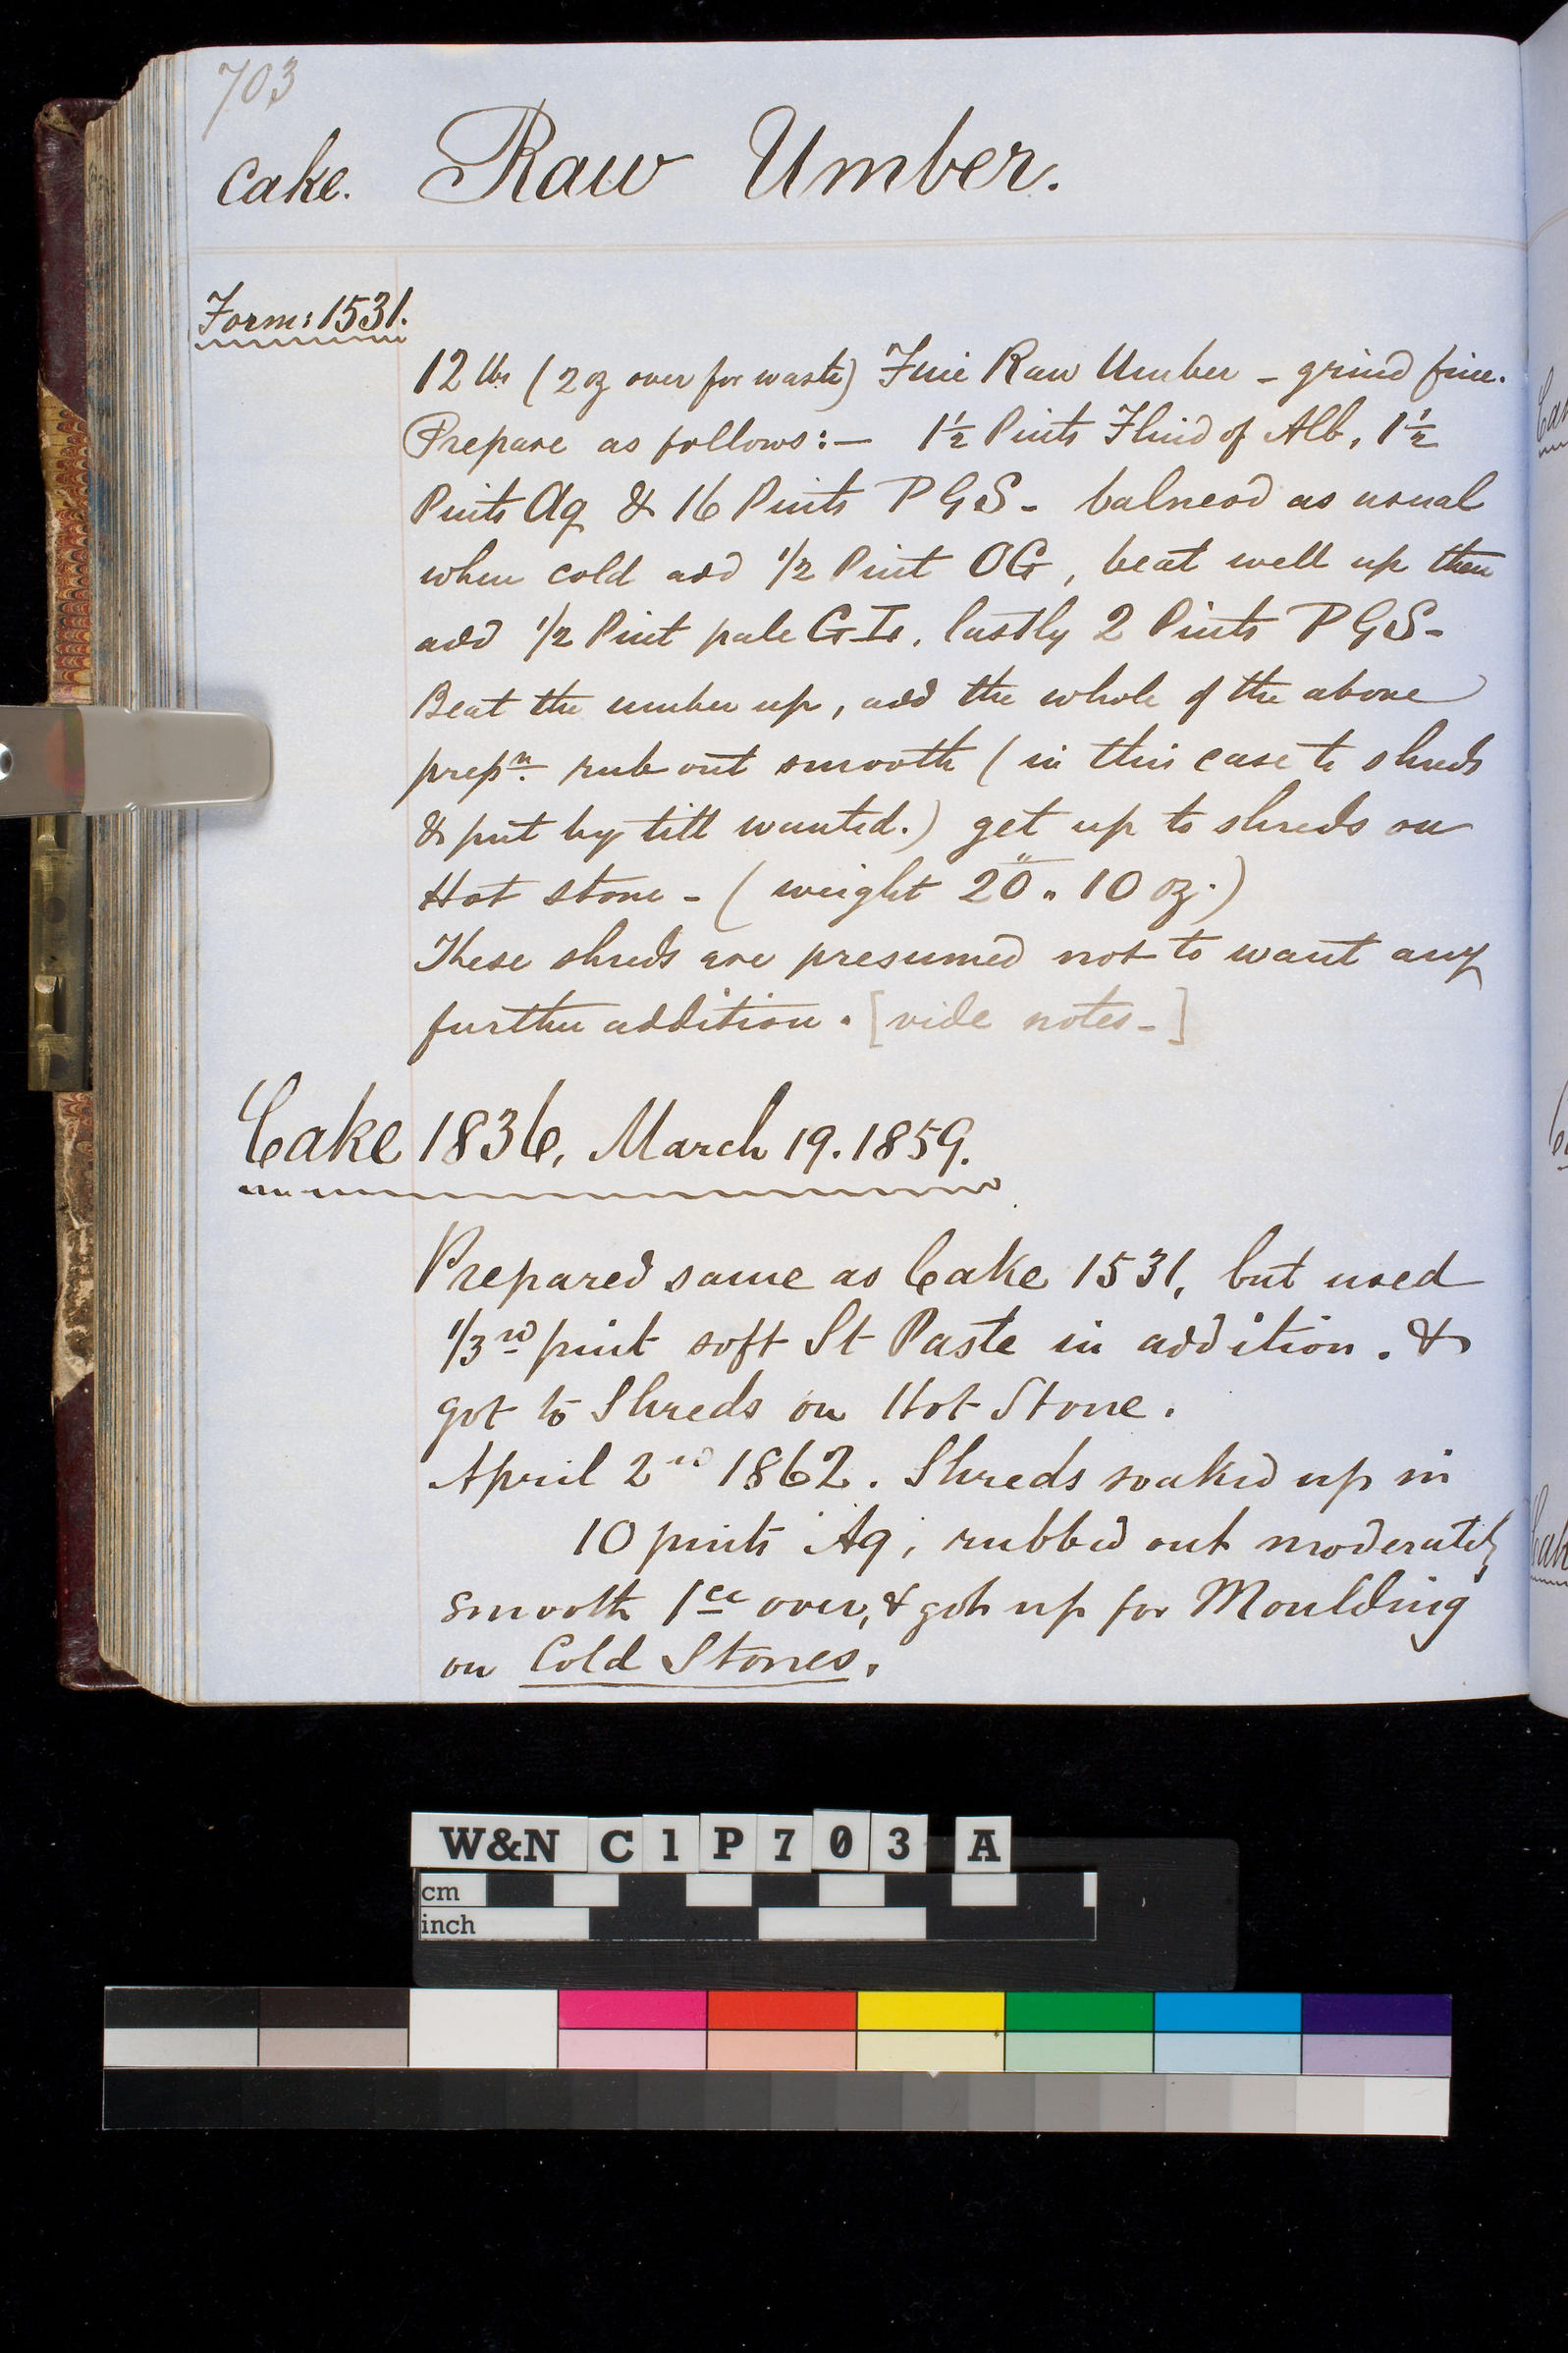 703
Cake. Raw Umber.
Form: 1531.
12 lbs (2 oz over for waste) Fine Raw Umber - grind fine.
Prepare as follows:— 1½ Pints Fluid of Alb, 1½
Pints Aq & 16 Pints P G S - balneod as usual
when cold add 1/2 Pint OG, beat well up then
add 1/2 Pint pale G I, lastly 2 Pints P G S -
Beat the umber up, add the whole of the above
prepn. rub out smooth (in this case to shreds
& put by till wanted.) get up to shreds on
Hot stone - (weight 20 " 10 oz.)
These shreds are presumed not to want any
further addition. [vide notes -]
Cake 1836, March 19. 1859.
Prepared same as Cake 1531, but used
1/3rd pint soft St Paste in addition. &
got to Shreds on Hot Stone.
April 2nd 1862. Shreds soaked up in
10 pints Aq, rubbed out moderately
smooth 1ce over, & got up for Moulding
on Cold Stones.
W&N C1P703 A
cm
inch